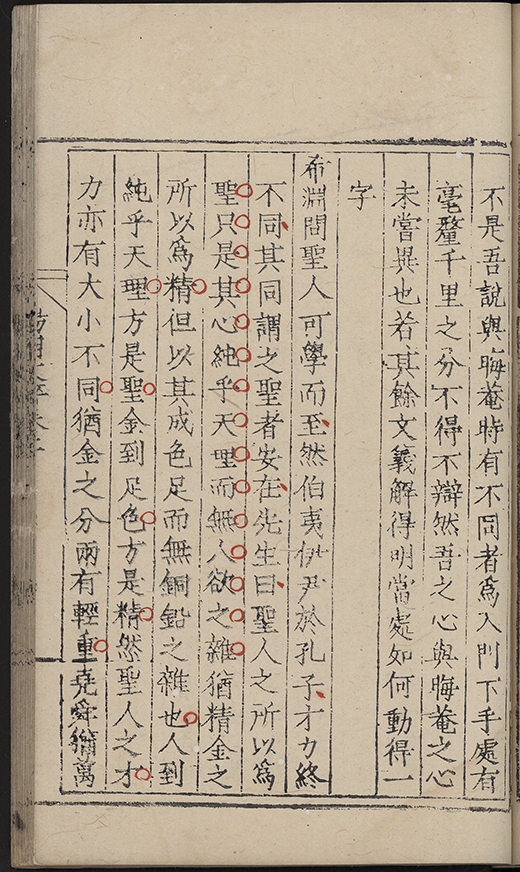 不是吾說與晦菴時有不同者爲入門下手處有
毫釐千里之分不得不辯然吾之心與晦菴之心
未嘗異也若其餘文義解得明當處如何動得一
字
希淵問聖人可學而至然伯夷伊尹於孔子才力終
不同其同謂之聖者安在先生曰聖人之所以爲
聖只是其心純乎天理而無人欲之雜猶精金之
所以爲精但以其成色足而無銅鉛之雜也人到
純乎天理方是聖金到足色方是精然聖人之才
力亦有大小不同猶金之分兩有輕重堯舜猶萬